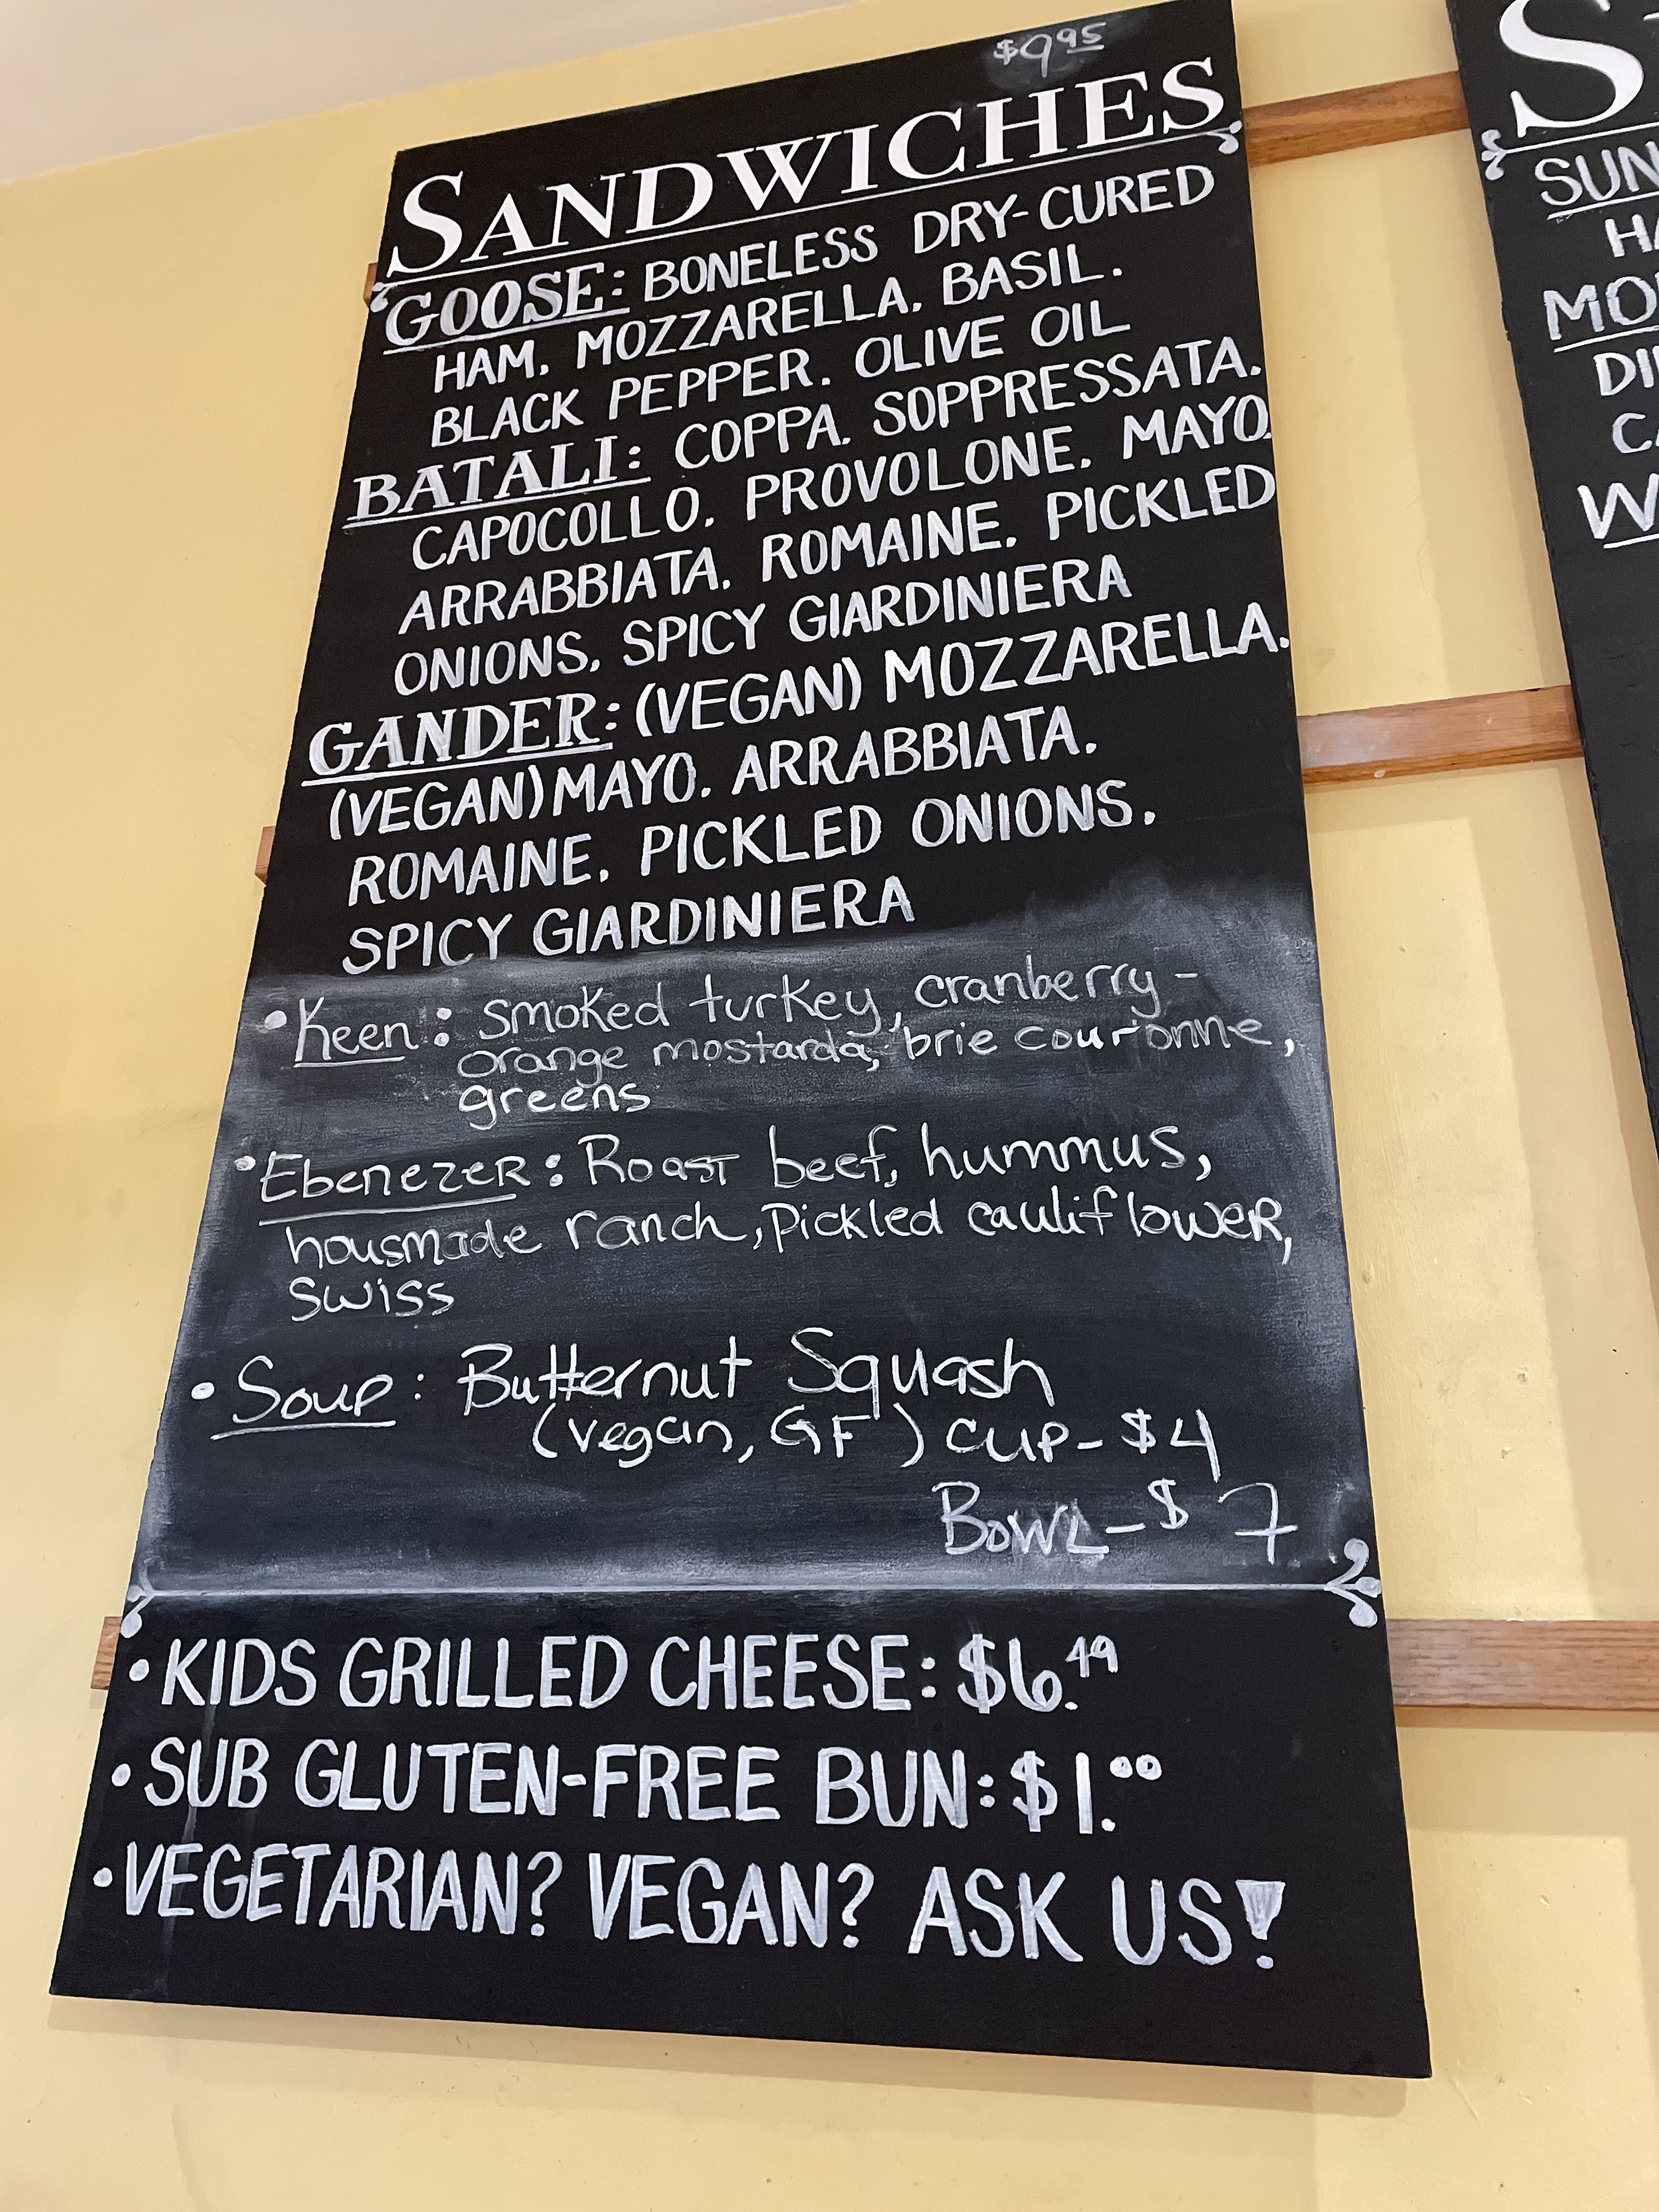 $9.95
SANDWICHES
GOOSE: BONELESS DRY-CURED
HAM. MOZZARELLA. BASIL.
BLACK PEPPER. OLIVE OIL
BATALI: COPPA. SOPPRESSATA.
CAPOCOLLO. PROVOLONE. MAYO.
ARRABBIATA. ROMAINE. PICKLED
ONIONS. SPICY GIARDINIERA
GANDER: (VEGAN) MOZZARELLA.
(VEGAN) MAYO. ARRABBIATA.
ROMAINE. PICKLED ONIONS.
SPICY GIARDINIERA
• Keen: smoked turkey, cranberry-
orange mostarda, brie couronne,
greens
• Ebenezer: Roast beef, hummus,
housmade ranch, Pickled cauliflower,
Swiss
• Soup: Butternut Squash
(vegan, GF) cup - $4
Bowl - $7
• KIDS GRILLED CHEESE: $6.49
• SUB GLUTEN-FREE BUN: $1.00
• VEGETARIAN? VEGAN? ASK US!
S
SUN
HA
MO
DI
CA
W